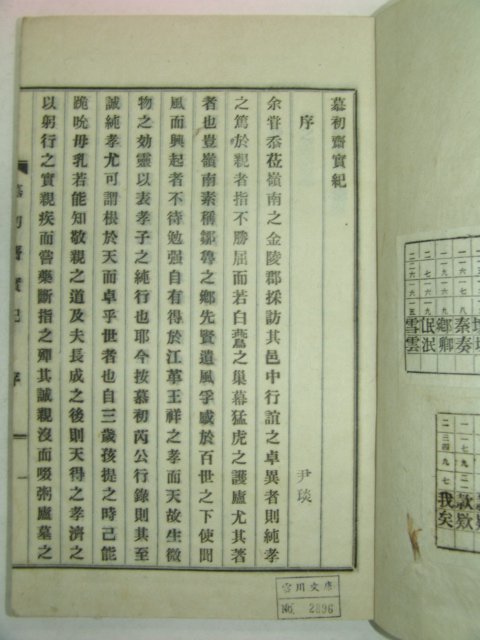 慕初齋實紀
序
尹琰
余甞忝莅嶺南之金陵郡採訪其邑中行誼之卓異者則純孝
之篤於親者指不勝屈而若白鷰之巢幕猛虎之護廬尤其著
者也豈嶺南素稱鄒魯之鄉先賢遺風孚感於百世之下使聞
風而興起者不待勉强自有得於江革王祥之孝而天故生微
物之効靈以表孝子之純行也耶今按慕初芮公行錄則其至
誠純孝尤可謂根於天而卓乎世者也自三歲孩提之時己能
跪吮母乳若能知敬親之道及夫長成之後則天得之孝濟之
以躬行之實親疾而嘗藥斷指之殫其誠親沒而啜粥廬墓之
慕初齋實紀
序
一
雪雲
氓泯
鄉卿
秦奏
我矣
欵欺
No. 2896